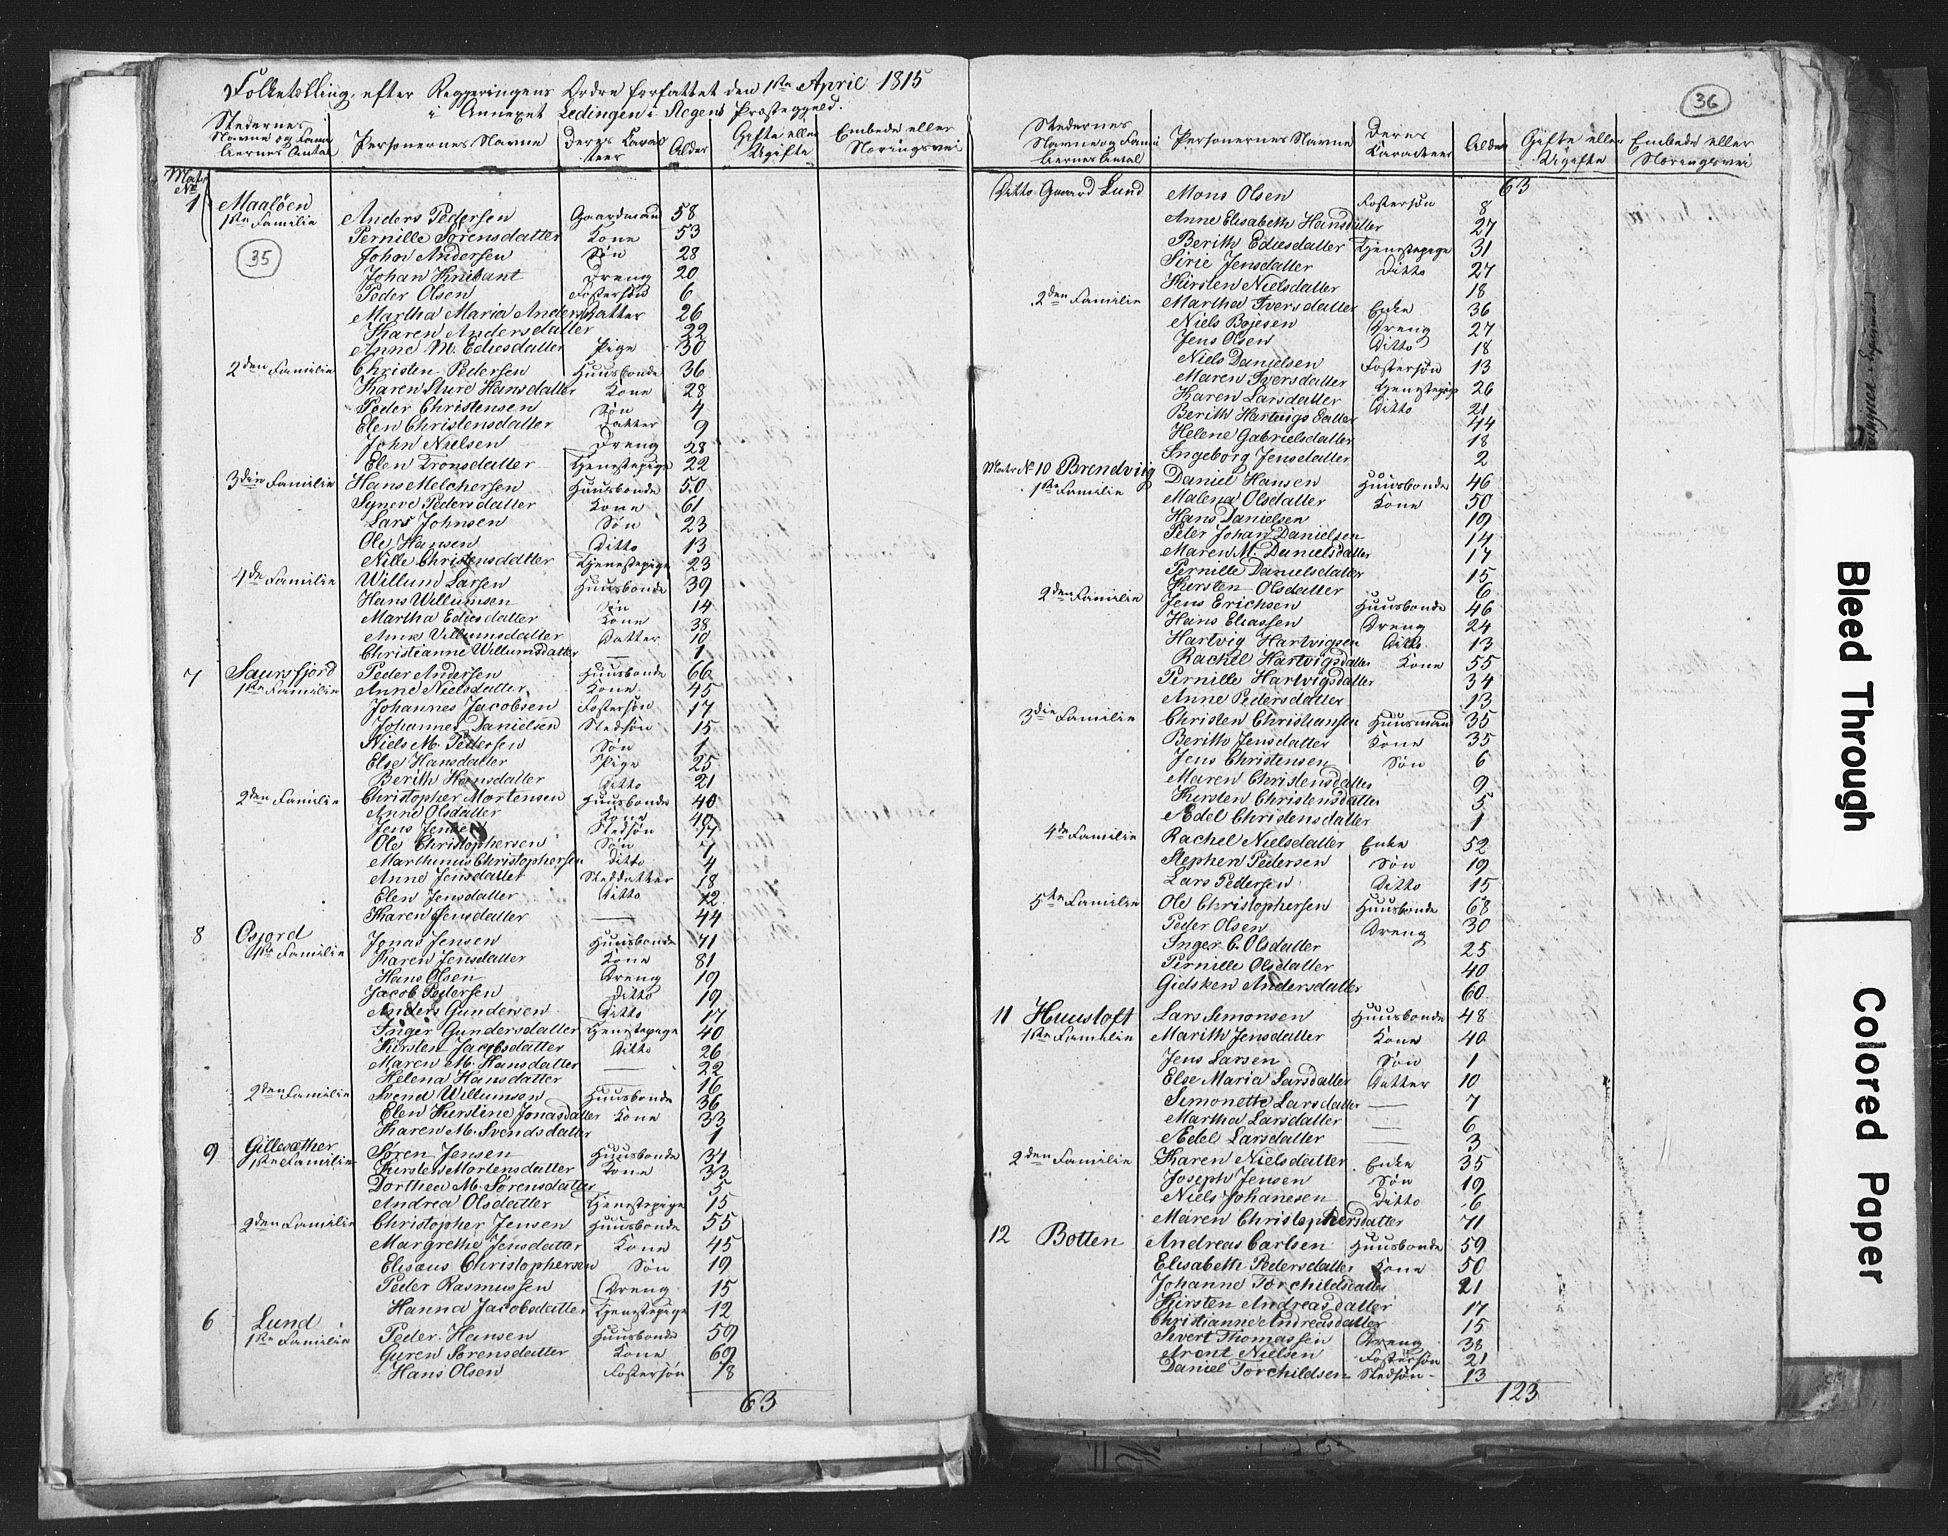 Folketelling efter Regjeringens Ordre forfattet den 1ste April 1815
i Annexet Ledingen i Stegens Præstegjeld.
Stedernes Navne og Familiernes Antal | Personernes Navne | Deres Karakteer | Alder | Gifte eller Ugifte | Embede eller Næringsvei
Matr No
1 Maaløen
1ste Familie Anders Pedersen Gaardmand 58
Pernille Sørensdatter Kone 53
35
John Andersen Søn 28
Johan Knibant Dreng 20
Peder Olsen Fostersøn 6
Martha Maria Anders Datter 26
Karen Andersdatter 22
Anne M. Ediesdatter Pige 30
2den Familie Christen Pedersen Huusbonde 36
Karen Sture Hansdatter Kone 28
Peder Christensen Søn 4
Elen Christensdatter Datter 9
John Nielsen Dreng 28
Elen Tronsdatter Tjenestepige 22
3die Familie Hans Melchersen Huusbonde 50
Syneve Pedersdatter Kone 61
Lars Johnsen Søn 23
Ole Hansen Ditto 13
Nille Christensdatter Tjenestepige 23
4de Familie Willum Larsen Huusbonde 39
Hans Willumsen Søn 14
Martha Ediesdatter Kone 38
Anne Willumsdatter Datter 10
Christianne Willumsdatter — 1
7 Saursfjord Peder Andersen Huusbonde 66
1ste Familie Anne Nielsdatter Kone 45
Johannes Jacobsen Fostersøn 17
Johannes Danielsen Stedsøn 15
Niels M. Pedersen Søn 1
Else Hansdatter Pige 25
Berith Hansdatter Ditto 21
2den Familie Christopher Mortensen Huusbonde 40
Anne Olsdatter Kone 40
Jens Jensen Stedsøn 17
Ole Christophersen Søn 7
Marthinus Christophersen Ditto 4
Anne Jensdatter Steddatter 18
Elen Jensdatter Ditto 12
Karen Jensdatter — 44
8 Osjord Jonas Jensen Huusbonde 71
1ste Familie Karen Jensdatter Kone 81
Hans Olsen Dreng 19
Jacob Pedersen Ditto 19
Anders Gundersen Ditto 17
Inger Gundersdatter Tjenestepige 40
Kirsten Jacobsdatter Ditto 26
Maren M. Hansdatter — 22
Helena Hansdatter — 16
2den Familie Svend Willumsen Huusbonde 36
Elen Kirstine Jonasdatter Kone 33
Karen M. Svendsdatter 1
9 Gillesæther Søren Jensen Huusbonde 34
1ste Familie Kirsten Mortensdatter Kone 33
Dorthea M. Sørensdatter 5
Andrea Olsdatter Tjenestepige 15
2den Familie Christopher Jensen Huusbonde 55
Margrethe Jensdatter Kone 45
Elisæus Christophersen Søn 19
Peder Rasmussen Dreng 15
Hanna Jacobsdatter Tjenestepige 12
6 Lund
1ste Familie Peder Hansen Huusbonde 59
Guren Sørensdatter Kone 69
Hans Olsen Fostersøn 18
63
36
Stedernes Navne og Familiernes Antal | Personernes Navne | Deres Karacteer | Alder | Gifte eller Ugifte | Embede eller Næringsvei
63
Ditto Gaard Lund Mons Olsen Fostersøn 8
Anne Elisabeth Hansdatter 27
Berith Ediesdatter Tjenestepige 31
Sirie Jensdatter Ditto 27
Kirsten Nielsdatter 18
2den Familie Martha Iversdatter Enke 36
Niels Bojesen Dreng 27
Jens Olsen Ditto 18
Niels Danielsen Fostersøn 13
Maren Iversdatter Tjenestepige 26
Karen Larsdatter Ditto 21
Berith Hartvigsdatter 44
Helene Gabrielsdatter 18
Ingeborg Jensdatter 2
Matr No 10 Brendviig Daniel Hansen Huusbonde 46
1ste Familie Malena Olsdatter Kone 50
Hans Danielsen 19
Peter Johan Danielsen 14
Maren M. Danielsdatter 17
Pernille Danielsdatter 15
Kirsten Olsdatter 6
2den Familie Jens Erichsen Huusbonde 46
Hans Eliassen Dreng 24
Hartvig Hartvigsen Ditto 13
Rachel Hartvigsdatter Kone 55
Pernille Hartvigsdatter 34
Anne Pedersdatter 13
3die Familie Christen Christiansen Huusmand 35
Berith Jensdatter Kone 35
Jens Christensen Søn 6
Maren Christensdatter 9
Kirsten Christensdatter 5
Edel Christensdatter 1
4de Familie Rachel Nielsdatter Enke 52
Stephen Pedersen Søn 19
Lars Pedersen Ditto 15
5te Familie Ole Christophersen Huusbonde 68
Peder Olsen Dreng 30
Inger C. Olsdatter 25
Pernille Olsdatter 40
Gidsken Andersdatter 60
11 Huustoft Lars Simonsen Huusbonde 48
1ste Familie Marith Jensdatter Kone 40
Jens Larsen Søn 1
Else Maria Larsdatter Datter 10
Simonette Larsdatter — 7
Martha Larsdatter — 6
Edel Larsdatter — 3
2den Familie Karen Nielsdatter Enke 35
Joseph Jensen Søn 19
Niels Johanesen Ditto 6
Maren Christophersdatter 71
12 Botten Andreas Carlsen Huusbonde 59
Elisabeth Pedersdatter Kone 50
Johanne Torchildsdatter 21
Kirsten Andreasdatter 17
Christianne Andreasdatter 15
Sivert Thomassen Dreng 38
Arent Nielsen Fostersøn 21
Daniel Torchildsen Stedsøn 13
123
Bleed Through
Colored Paper